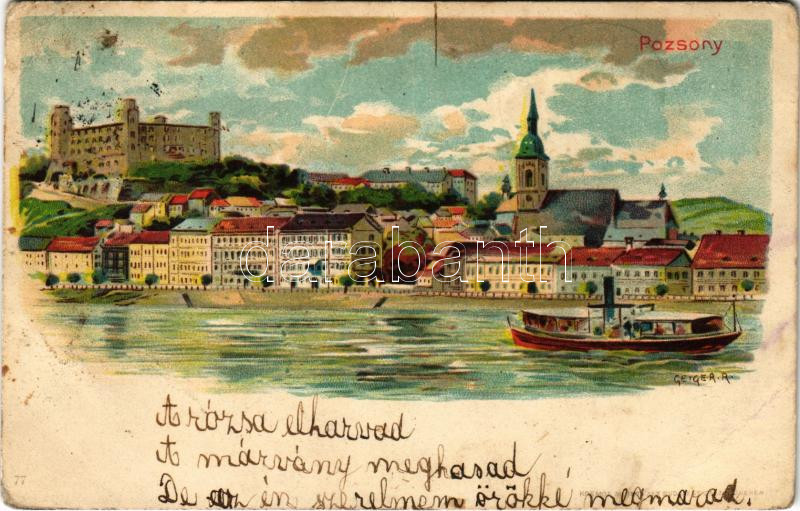 Pozsony
databanth
GEIGER.R.
A rózsa elharvad
A márvány meghasad
De az én szerelmem örökké megmarad.
77